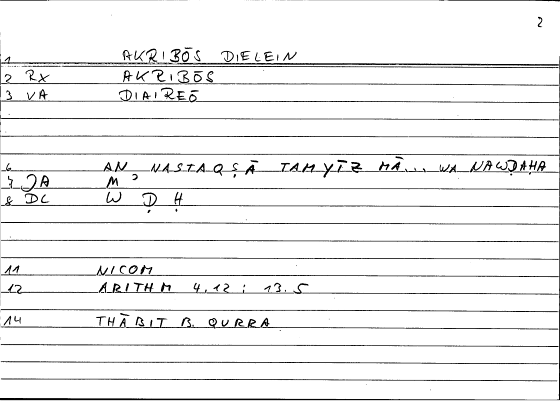 2
1 AKRIBŌS DIELEIN
2 RX AKRIBŌS
3 VA DIAIREŌ
6 AN NASTAQṢĀ TAMYĪZ MĀ... WA NAWḌAḤA
7 JA M ʾ
8 DC W Ḍ Ḥ
11 NICOM
12 ARITHM 4.12 : 13.5
14 THĀBIT B. QURRA